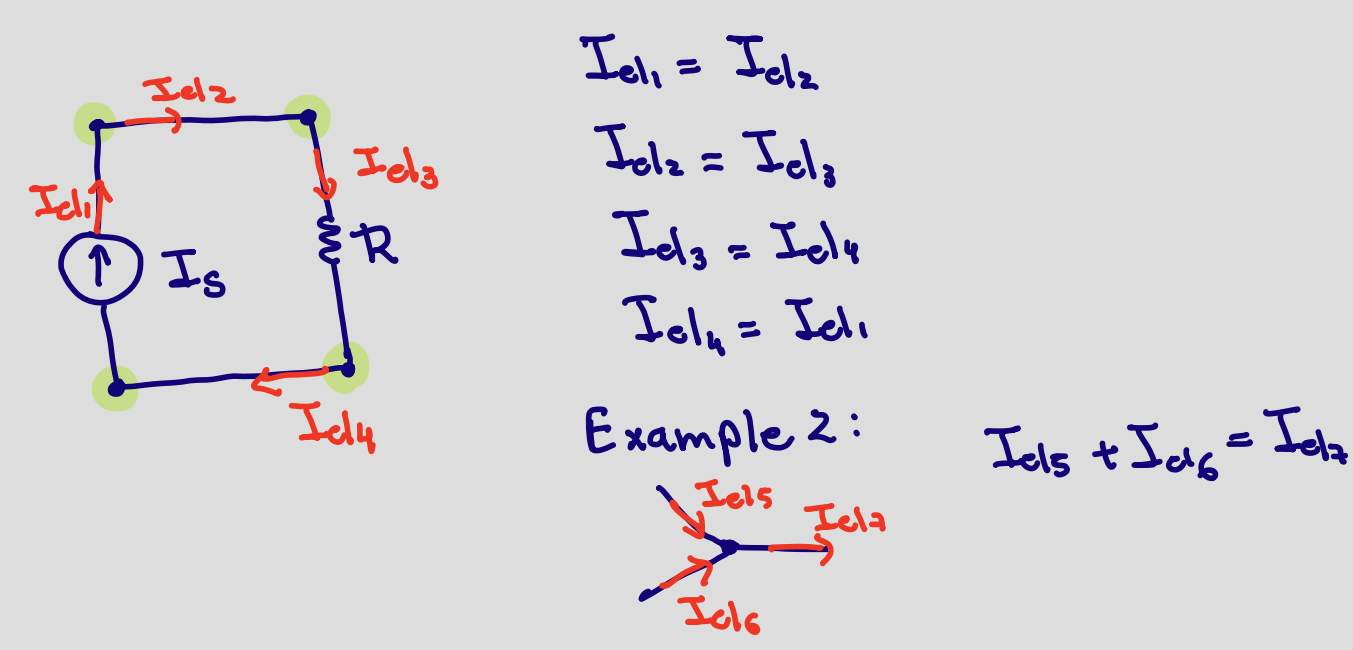 I_el2
I_el3
I_el1
I_s
R
I_el4
I_el1 = I_el2
I_el2 = I_el3
I_el3 = I_el4
I_el4 = I_el1
Example 2:
I_el5 + I_el6 = I_el7
I_el5
I_el7
I_el6